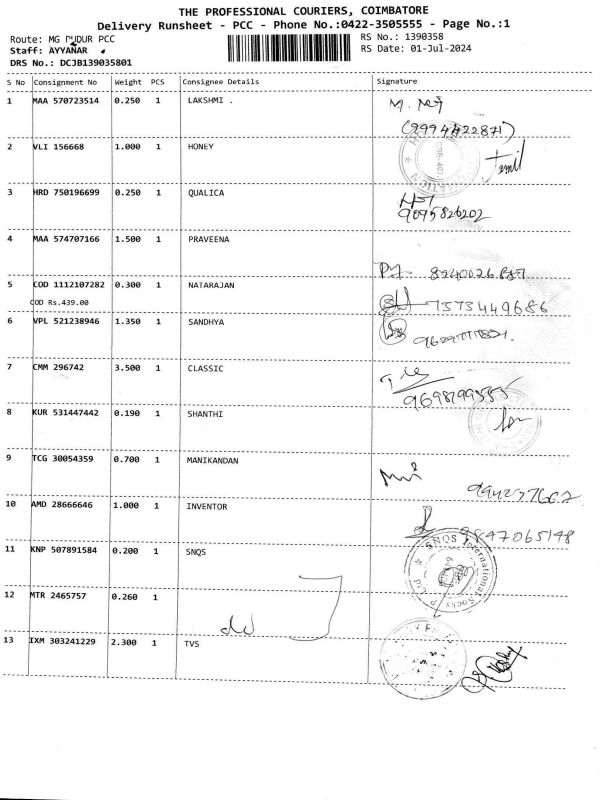 THE PROFESSIONAL COURIERS, COIMBATORE
Delivery Runsheet - PCC - Phone No.:0422-3505555 - Page No.:1
Route: MG PUDUR PCC
RS No.: 1390358
Staff: AYYANAR
RS Date: 01-Jul-2024
DRS No.: DCJB139035801
S No Consignment No Weight PCS Consignee Details Signature
1 MAA 570723514 0.250 1 LAKSHMI .
(9994422871)
2 VLI 156668 1.000 1 HONEY
3 HRD 750196699 0.250 1 QUALICA
9095826202
4 MAA 574707166 1.500 1 PRAVEENA
5 COD 1112107282 0.300 1 NATARAJAN
COD Rs.439.00
7373449686
6 VPL 521238946 1.350 1 SANDHYA
7 CMM 296742 3.500 1 CLASSIC
8 KUR 531447442 0.190 1 SHANTHI
9 TCG 30054359 0.700 1 MANIKANDAN
10 AMD 28666646 1.000 1 INVENTOR
9847065148
11 KNP 507891584 0.200 1 SNQS
SNQS International Socks P Ltd
12 MTR 2465757 0.260 1
13 IXM 303241229 2.300 1 TVS